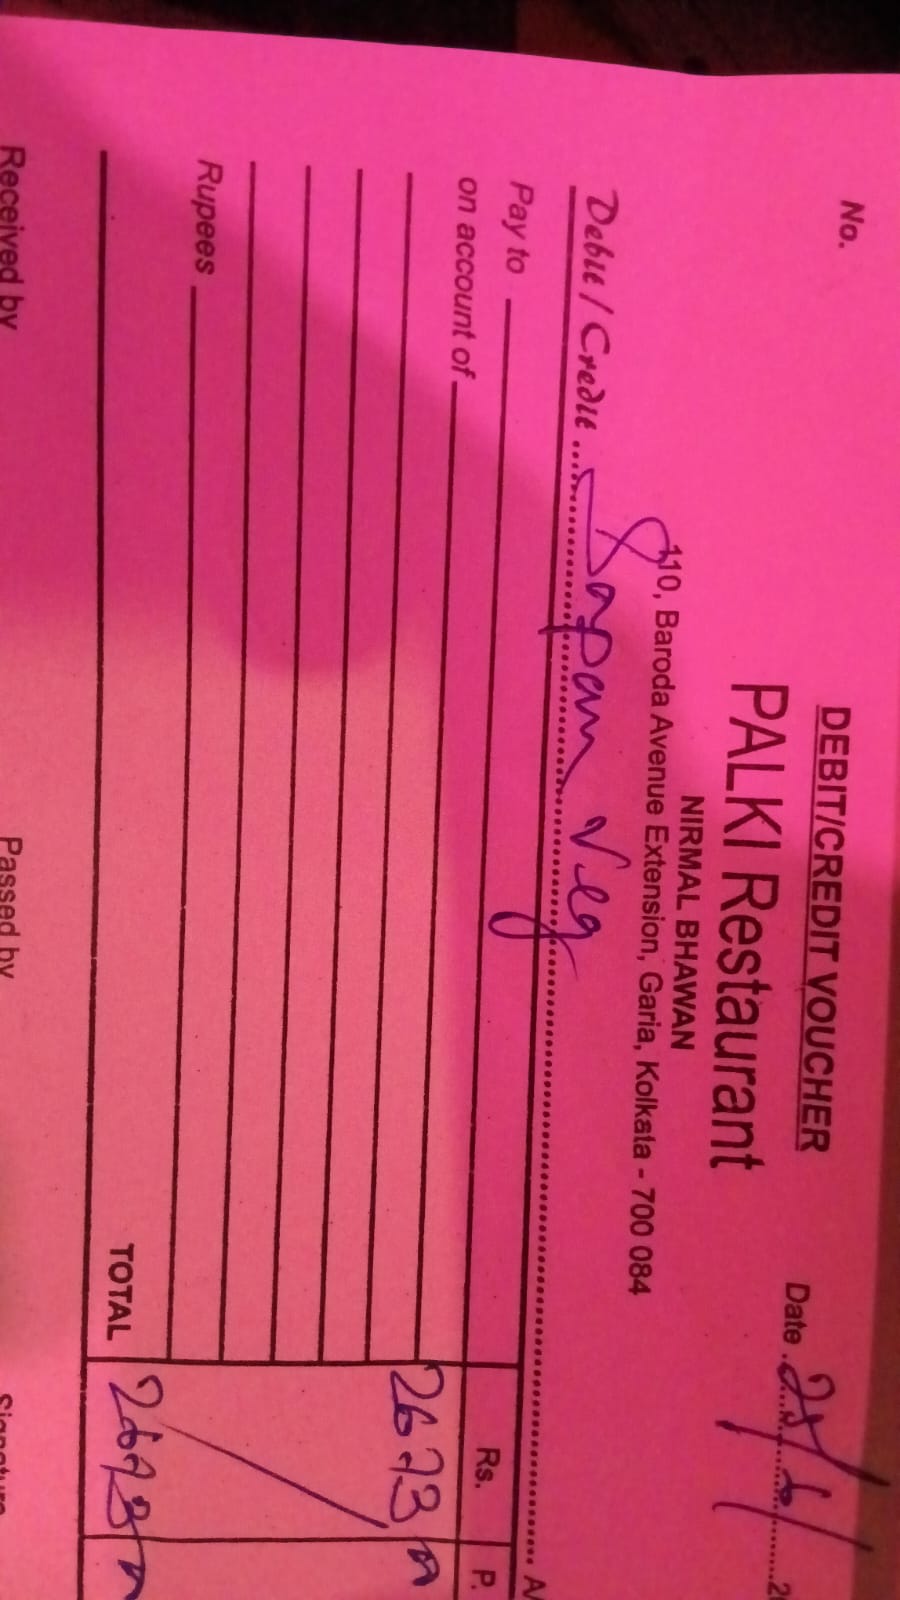 DEBIT/CREDIT VOUCHER
No.
PALKI Restaurant
Date 25/6/ 2
NIRMAL BHAWAN
110, Baroda Avenue Extension, Garia, Kolkata - 700 084
Debit / Credit Sapan Veg A/
Pay to
Rs. P.
on account of
2673
Rupees
TOTAL 2673
Received by Passed by Signature